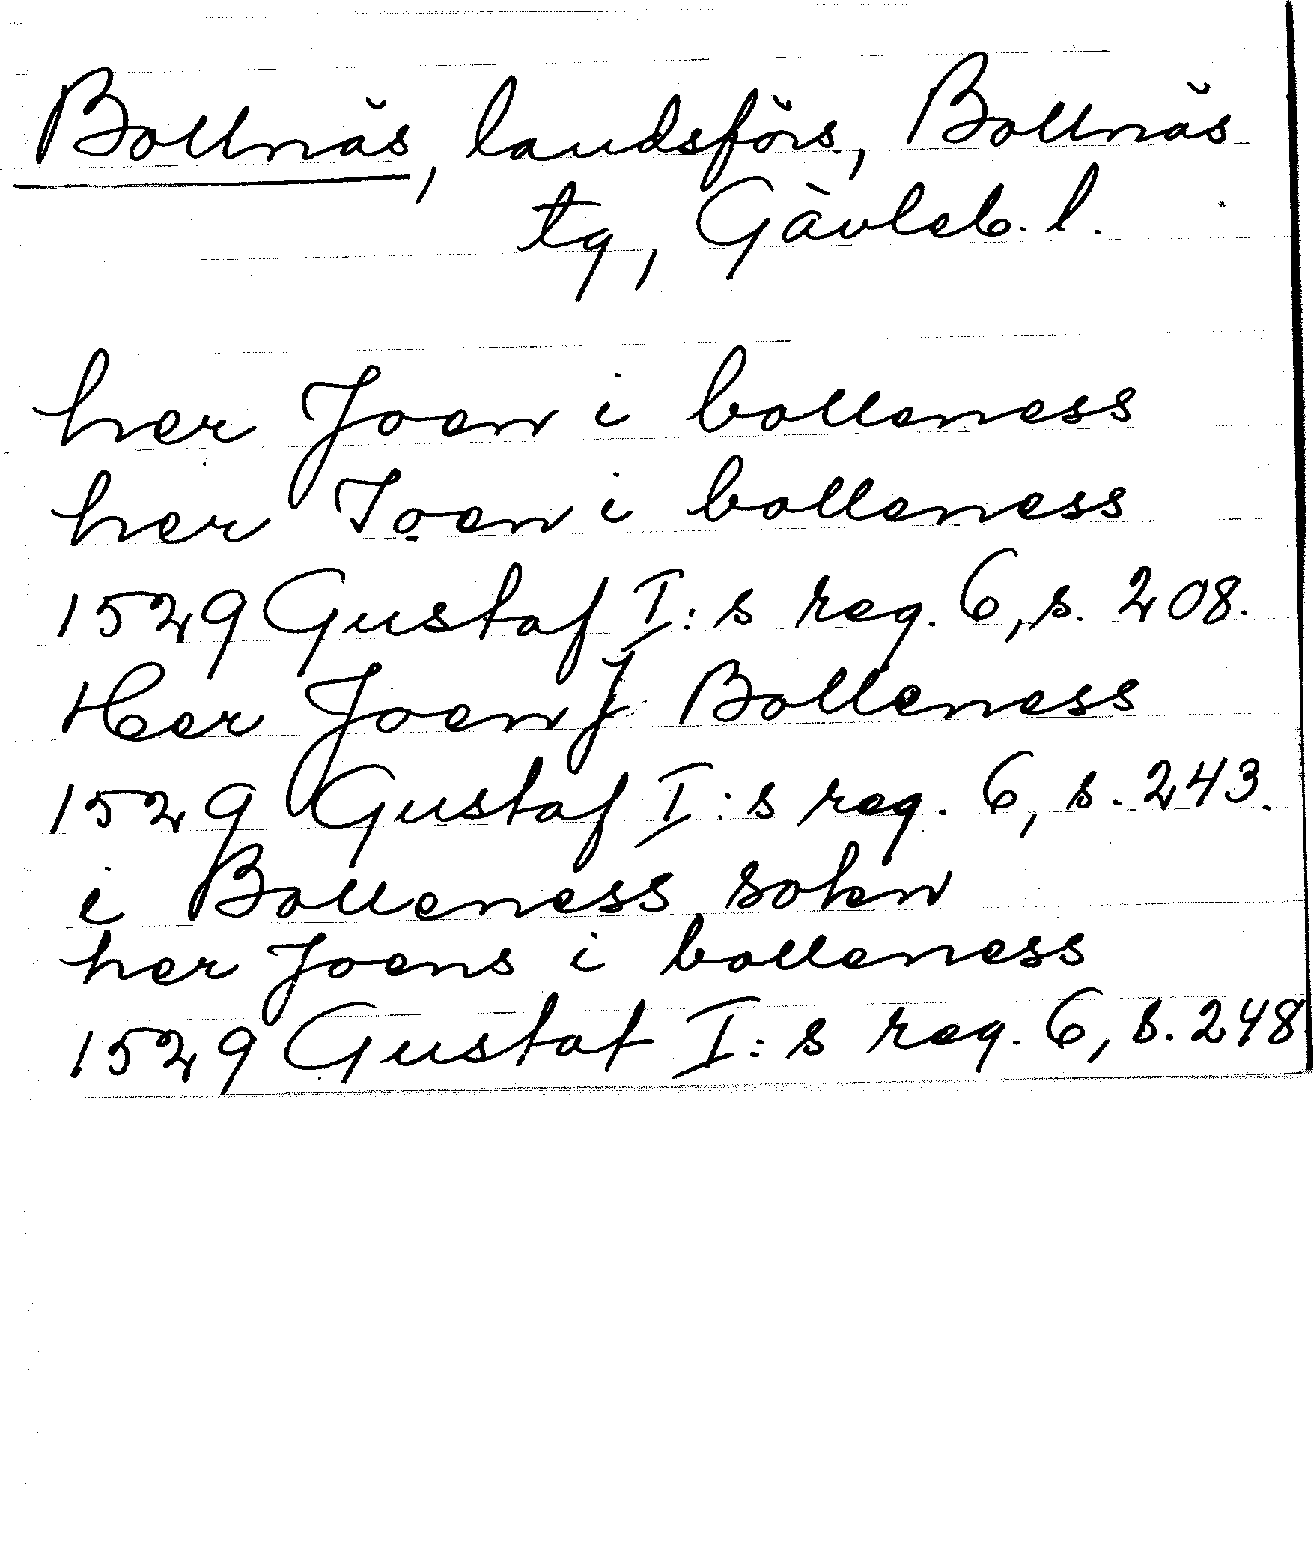 Bollnäs, landsförs., Bollnäs
tg, Gävleb. l.
her Joen i bolleness
her Joen i bolleness
1529 Gustaf I:s reg. 6, s. 208.
Her Joen J Bolleness
1529 Gustaf I:s reg. 6, s. 243.
i Bolleness sokn
her Joens i bolleness
1529 Gustaf I:s reg. 6, s. 248